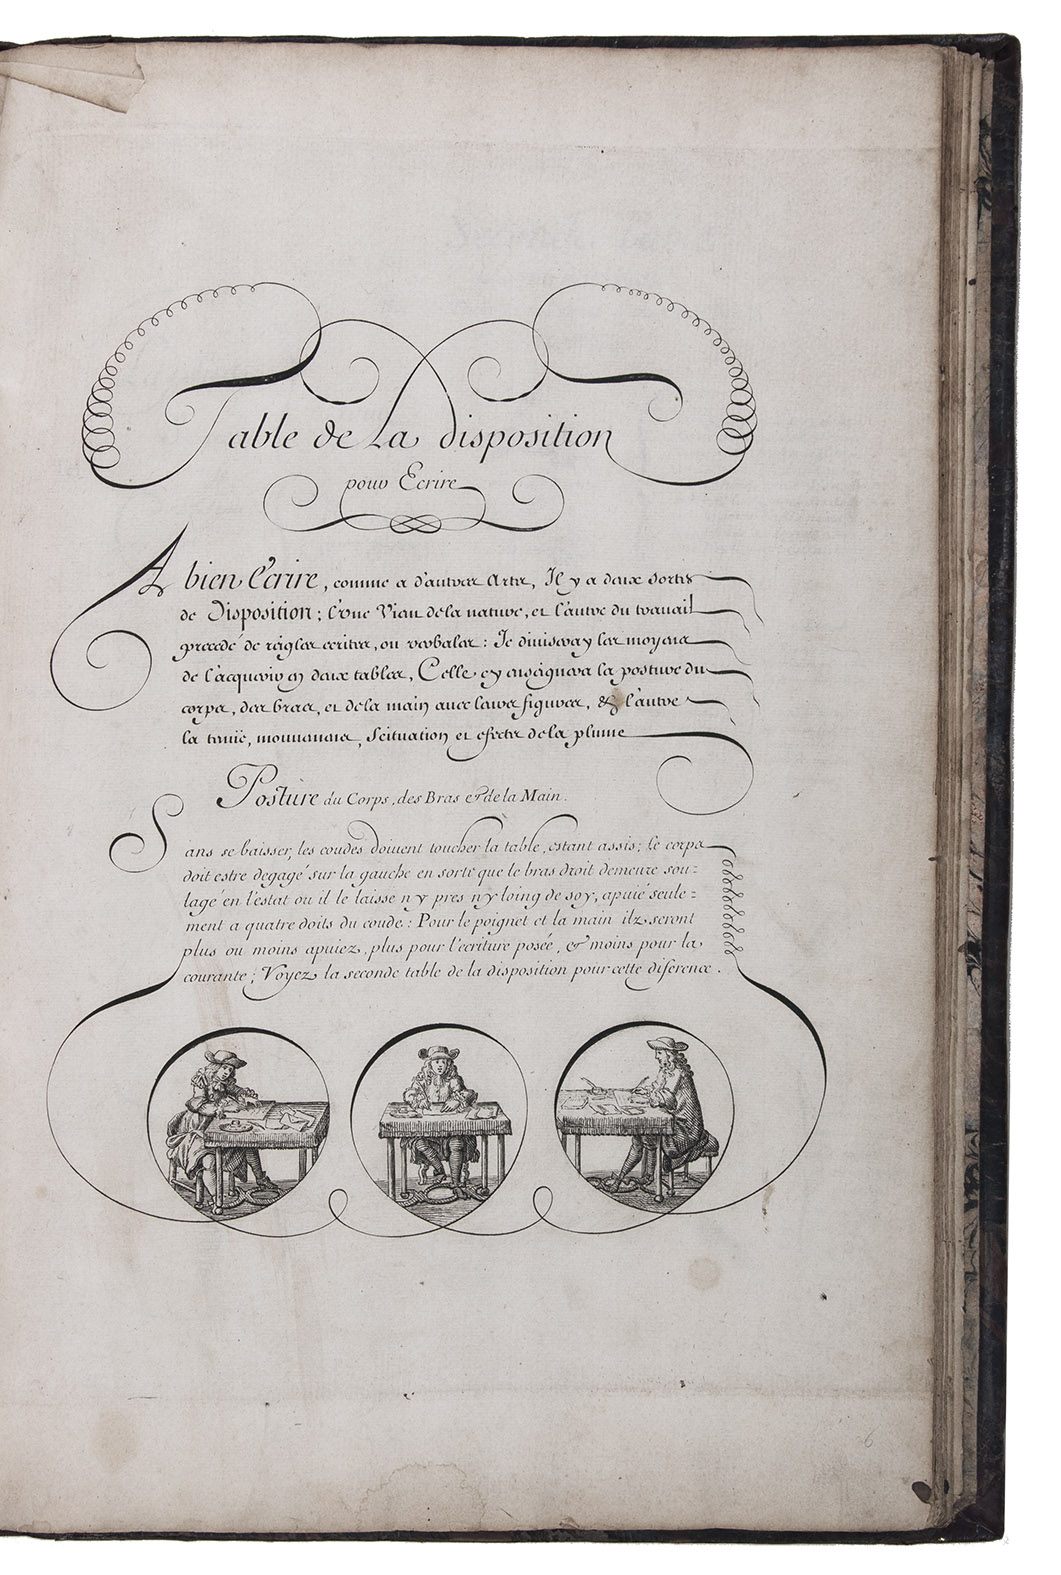 Table de La disposition
pour Ecrire
A bien Ecrire, comme a d'autres Arts, Il y a deux sortes
de Disposition; l'vne Vian de la nature, et l'autre du travail
precedé de régles ecrites, ou verbales: Je diuiseray les moyens
de l'acquerir en deux tables, Celle cy enseignera la posture du
corps, des bras, et de la main auec leurs figures, & l'autre
la tenüe, mouuemens, scituation et efects de la plume
Posture du Corps, des Bras et de la Main.
Sans se baisser, les coudes doiuent toucher la table, estant assis; le corps
doit estre degagé sur la gauche en sorte que le bras droit demeure sou=
lagé en l'estat ou il le laisse ny pres ny loing de soy, apuié seule=
ment a quatre doits du coude: Pour le poignet et la main ilz seront
plus ou moins apuiez, plus pour l'ecriture posée, & moins pour la
courante; Voyez la seconde table de la disposition pour cette diference.
6